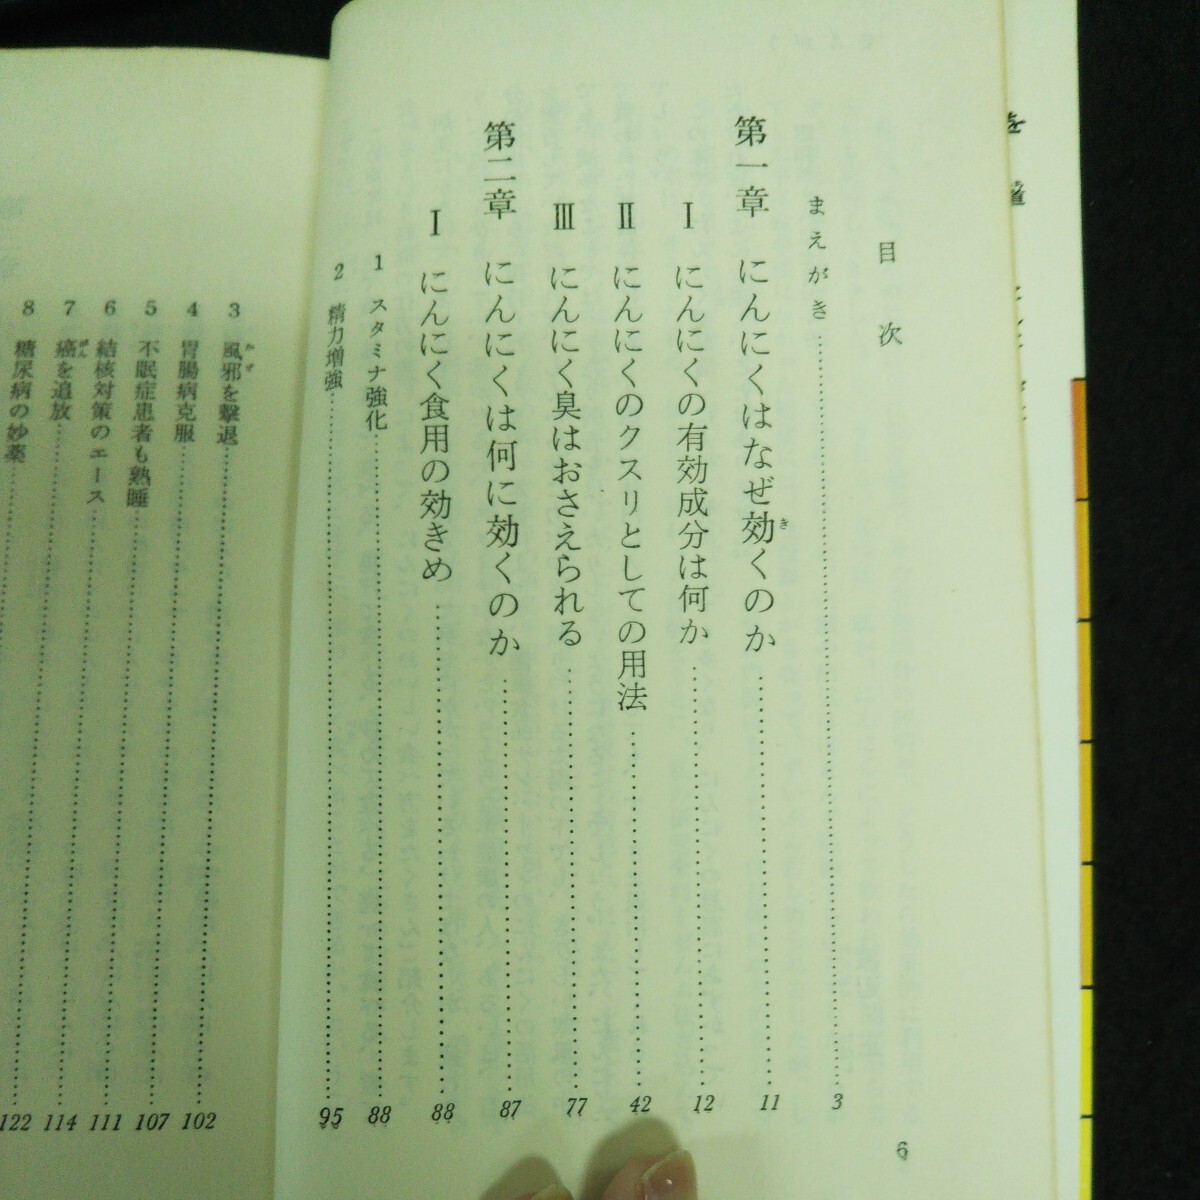 目次
まえがき……3
第一章 にんにくはなぜ効くのか……11
Ⅰ にんにくの有効成分は何か……12
Ⅱ にんにくのクスリとしての用法……42
Ⅲ にんにく臭はおさえられる……77
第二章 にんにくは何に効くのか……87
Ⅰ にんにく食用の効きめ……88
1 スタミナ強化……88
2 精力増強……95
6
3 風邪を撃退……102
4 胃腸病克服
5 不眠症患者も熟睡……107
6 結核対策のエース……111
7 癌を追放……114
8 糖尿病の妙薬……122